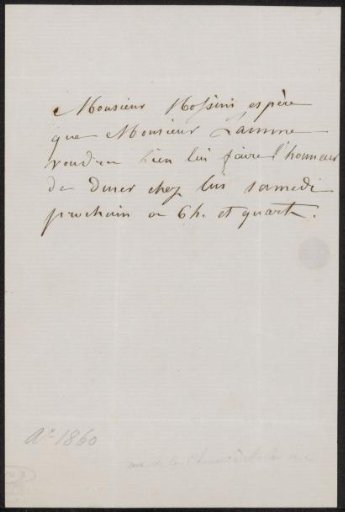 Monsieur Rossini espère
que Monsieur Lamme
voudra bien lui faire l'honneur
de diner chez lui samedi
prochain a 6 h. et quart.
Ao 1860